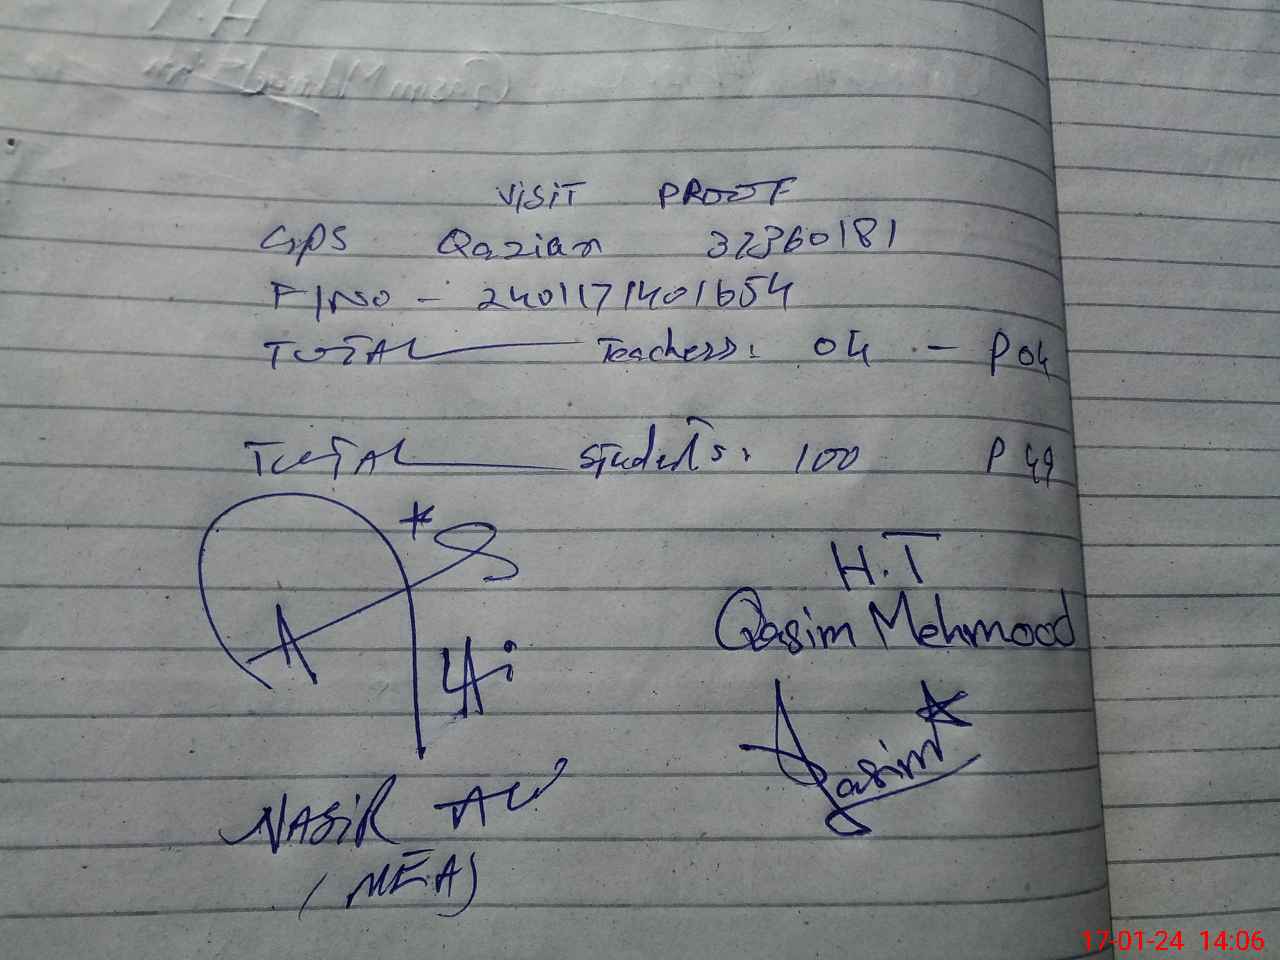 VISIT PROOF
GPS Qazian 37360181
F/NO - 2401171401654
TOTAL Teachers: 04 - P 04
TOTAL Students: 100 P 49
H.T
Qasim Mehmood
Qasim
NASIR ALI
(MEA)
17-01-24 14:06